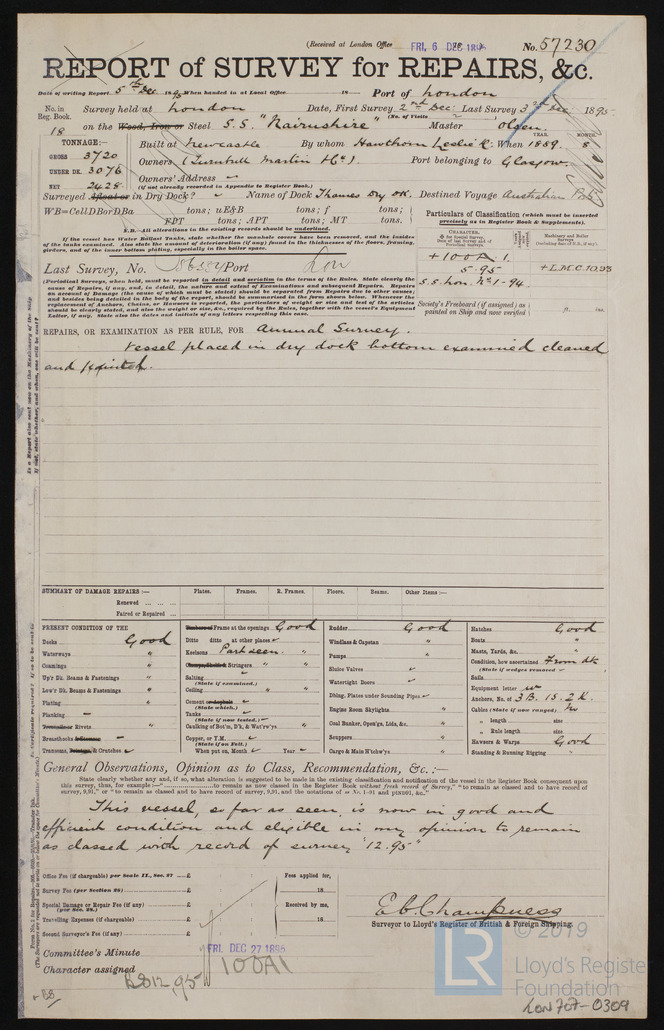 (Received at London Office FRI. 6 DEC 1895
No. 57230
REPORT of SURVEY for REPAIRS, &c.
Date of writing Report 5th Dec 1895 When handed in at Local Office 18 Port of London
No. in Reg. Book. Survey held at London Date, First Survey 2nd Dec: Last Survey 3rd Dec 1895
(No. of Visits
18 on the Wood, Iron or Steel S.S. "Nairnshire" Master Olsen.
TONNAGE:—
GROSS 3720
UNDER DK. 3076
NET 2428
Built at Newcastle By whom Hawthorn Leslie & Co. When 1889. MONTH 8
Owners (Turnbull Martin & Co) Port belonging to Glasgow.
Owners' Address
(if not already recorded in Appendix to Register Book.)
Surveyed Afloat or in Dry Dock? Name of Dock Thames Dry Dk. Destined Voyage Australian Ports
WB=CellDBorDBa tons; uE&B tons; f tons;
FPT tons; APT tons; MT tons.
N.B.—All alterations in the existing records should be underlined.
If the vessel has Water Ballast Tanks, state whether the manhole covers have been removed, and the insides
of the tanks examined. Also state the amount of deterioration (if any) found in the thicknesses of the floors, framing,
girders, and of the inner bottom plating, especially in the boiler space.
Particulars of Classification (which must be inserted
precisely as in Register Book & Supplements).
CHARACTER.
Machinery and Boiler Surveys
+100A1.
5.95
S.S. Lon. No 1-94.
+L.M.C. 10.93
Last Survey, No. 56534 Port Lon
(Periodical Surveys, when held, must be reported in detail and seriatim in the terms of the Rules. State clearly the
cause of Repairs, if any, and, in detail, the nature and extent of Examinations and subsequent Repairs. Repairs
on account of Damage (the cause of which must be stated) should be separated from Repairs due to other causes;
and besides being detailed in the body of the report, should be summarised in the form shown below. Whenever the
replacement of Anchors, Chains, or Hawsers is reported, the particulars of weight or size and test of the articles
should be clearly stated, and also the weight or size, &c., required by the Rules, together with the vessel's Equipment
Letter, if any. State also the dates and initials of any letters respecting this case.
Society's Freeboard (if assigned) as
painted on Ship and now verified ft. ins.
REPAIRS, OR EXAMINATION AS PER RULE, FOR Annual Survey.
Vessel placed in dry dock bottom examined cleaned
and painted.
SUMMARY OF DAMAGE REPAIRS :— Plates. Frames. R. Frames. Floors. Beams. Other Items :—
Renewed ... ... ...
Faired or Repaired ...
PRESENT CONDITION OF THE
Decks Good
Waterways "
Coamings "
Up'r Dk. Beams & Fastenings "
Low'r Dk. Beams & Fastenings "
Plating "
Planking
Treenails or Rivets "
Breasthooks
Transoms, & Crutches
Frame at the openings Good
Ditto ditto at other places
Keelsons Part seen.
Stringers " "
Salting
(State if examined.)
Ceiling "
Cement or Asphalt
(State which.)
Tanks
(State if now tested.)
Caulking of Bot'm, D'k, & Wat'rw'ys "
Copper, or Y.M.
(State if on Felt.)
When put on, Month Year
Rudder Good
Windlass & Capstan "
Pumps "
Sluice Valves
Watertight Doors
Dblng. Plates under Sounding Pipes
Engine Room Skylights "
Coal Bunker, Open'gs, Lids, &c. "
Scuppers "
Cargo & Main H'tchw'ys "
Hatches Good
Boats "
Masts, Yards, &c. "
Condition, how ascertained From Dk
(State if wedges removed
Sails
Equipment letter
Anchors, No. of 3 B. 1 S. 2 K.
Cables (State if now ranged) No
" length size
" Rule length size
Hawsers & Warps Good
Standing & Running Rigging "
General Observations, Opinion as to Class, Recommendation, &c. :—
State clearly whether any, and if so, what alteration is suggested to be made in the existing classification and notification of the vessel in the Register Book consequent upon
this survey, thus, for example :—"..............to remain as now classed in the Register Book without fresh record of Survey," "to remain as classed and to have record of
survey, 9,91," or "to remain as classed and to have record of survey, 9,91, and the notations of
This vessel, so far as seen, is now in good and
efficient condition and eligible in my opinion to remain
as classed with record of survey "12.95"
Office Fee (if chargeable) per Scale II., Sec. 27 ...£
Survey Fee (per Section 28) ...£
Special Damage or Repair Fee (if any)
(per Sec. 28.) ...£
Travelling Expenses (if chargeable) ...£
Second Surveyor's Fee (if any) ...£
Fees applied for,
18
Received by me,
18
E.C. Champness
Surveyor to Lloyd's Register of British & Foreign Shipping.
Committee's Minute FRI. DEC 27 1895
Character assigned 100A1
BS12,95
© 2019
LR
Lloyd's Register
Foundation
LON 707-0309